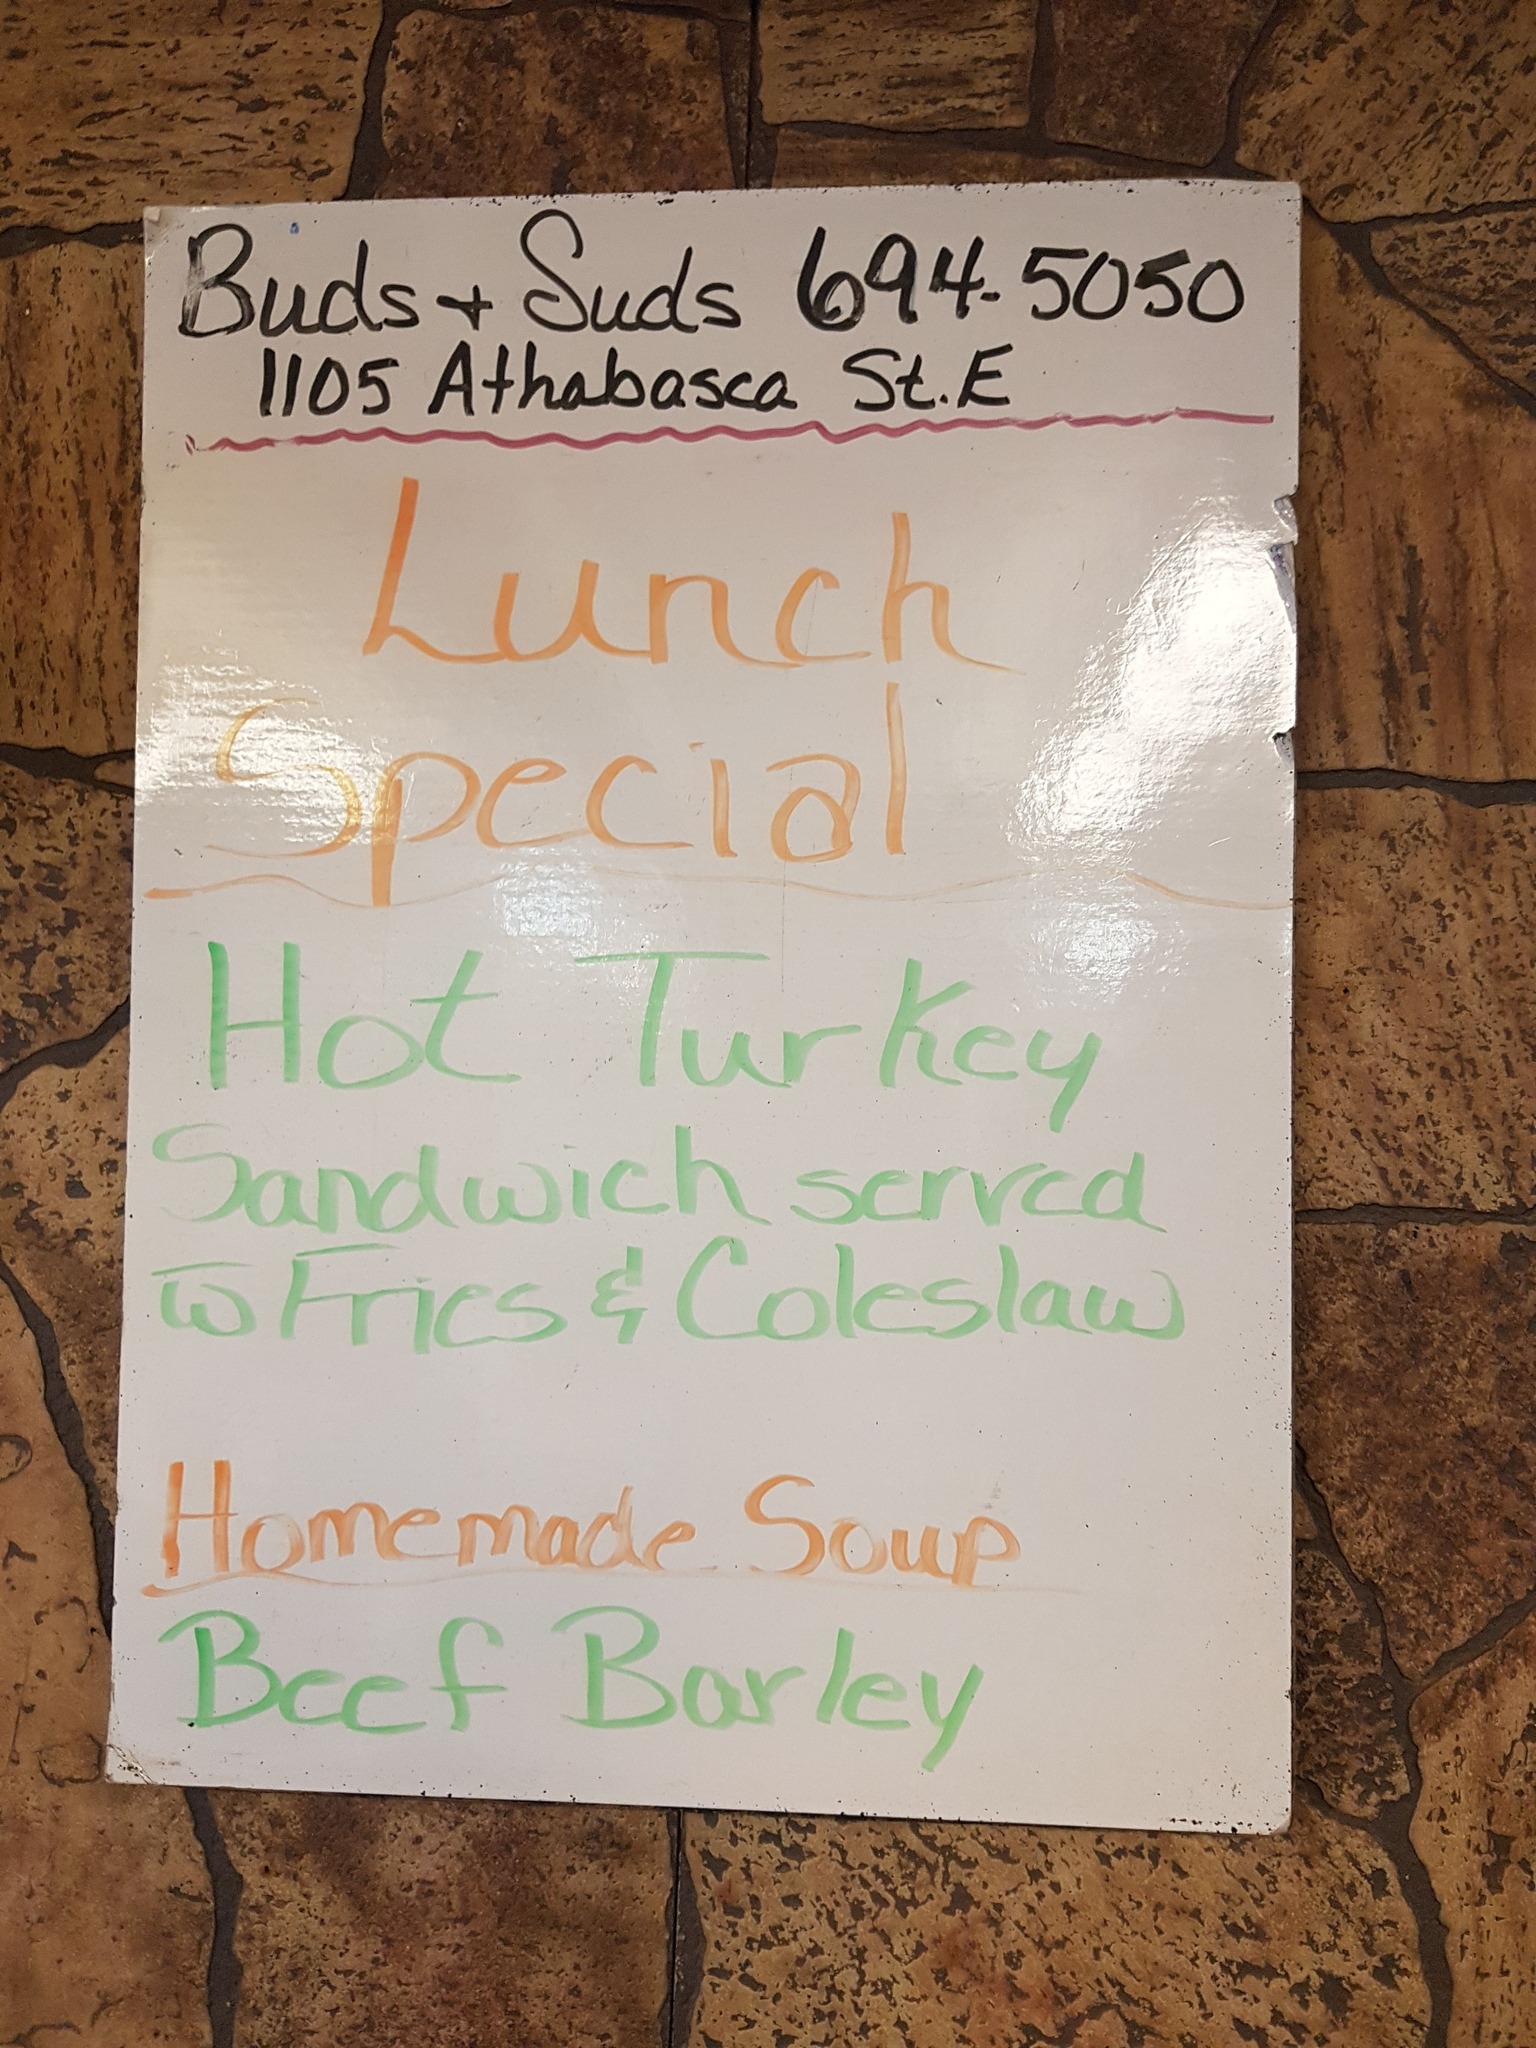 Buds + Suds 694-5050
1105 Athabasca St. E
Lunch
Special
Hot Turkey
Sandwich served
w Fries & Coleslaw
Homemade Soup
Beef Barley